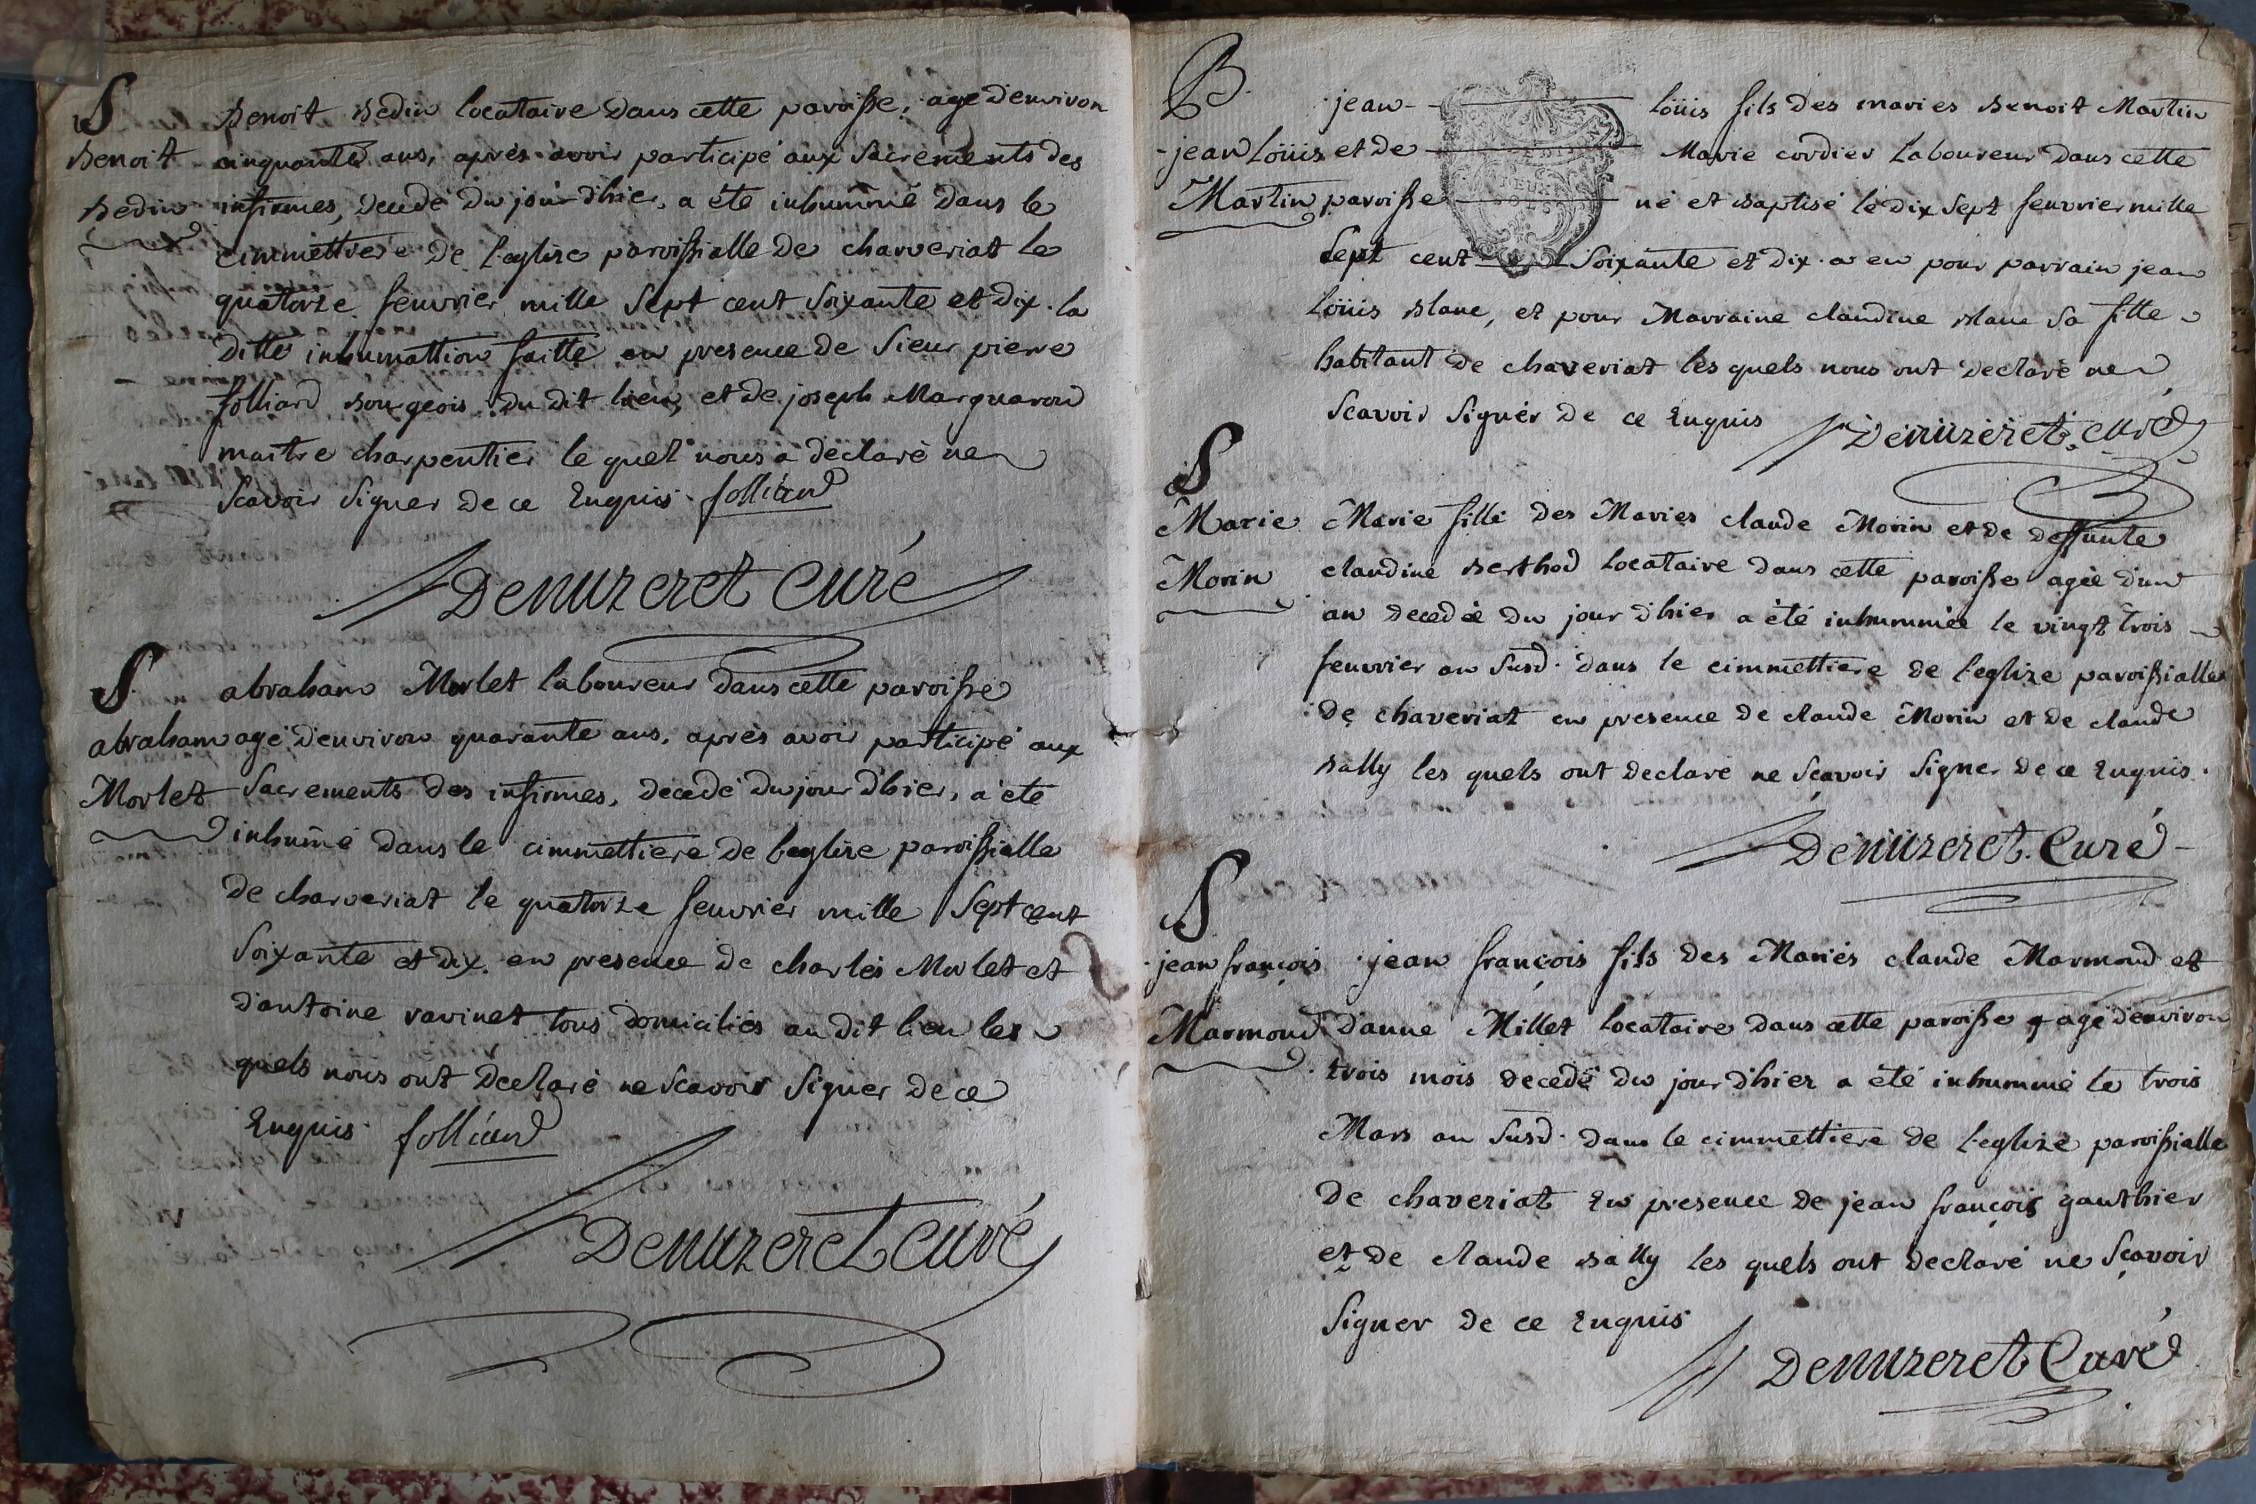 S
Benoit
Bedin
Benoit Bedin locataire dans cette paroisse, agé d'environ
cinquante ans, après avoir participé aux Sacrements des
infirmes, decedé du jour d'hier, a été inhummé dans le
cimmettiere de l'eglize paroissialle de charveriat le
quatorze feuvrier mille Sept cent Soixante et dix. la
ditte inhumattion faitte en presence de Sieur pierre
folliard bourgeois du dit lieu, et de joseph Marguaron
maitre charpentier le quel nous a déclaré ne
Scavoir Signer de ce Enquis. folliard
Denuzeret Curé
S
abraham
Morlet
abraham Morlet laboureur dans cette paroisse
agé d'environ quarante ans, après avoir participé aux
Sacrements des infirmes, decedé du jour d'hier, a été
inhumé dans le cimmettiere de l'eglize paroissialle
de charveriat le quatorze feuvrier mille Sept cent
Soixante et dix. en presence de charles Morlet et
d'antoine ravinet tous domiciliés au dit lieu les
quels nous ont declaré ne Scavoir Signer de ce
Enquis. folliard
Denuzeret Curé
B.
jean Loüis
Martin
jean Loüis fils des mariés Benoit Martin
et de Marie cordier Laboureur dans cette
paroisse né et Baptisé le dix Sept feuvrier mille
Sept cent Soixante et dix. a eu pour parrain jean
Loüis Blanc, et pour Marraine claudine Blanc Sa fille
habitant de chaveriat les quels nous ont declaré ne
Scavoir Signer de ce Enquis Denuzeret curé
S
Marie
Morin
Marie fille des Mariés claude Morin et de deffunte
claudine Berthod Locataire dans cette paroisse agée d'un
an decedée du jour d'hier a été inhummée le vingt trois
feuvrier an Susd. dans le cimmettiere de l'eglize paroissialle
de chaveriat en presence de claude Morin et de claude
Bally les quels ont declaré ne Scavoir Signer de ce Enquis.
Denuzeret. Curé
S
jean françois
Marmond
jean françois fils des Mariés claude Marmond et
d'anne Millet Locataire dans cette paroisse agé d'environ
trois mois decedé du jour d'hier a été inhummé le trois
Mars an Susd. dans le cimmettiere de l'eglize paroissialle
de chaveriat En presence de jean françois gauthier
et de claude Bally les quels ont declaré ne Scavoir
Signer de ce Enquis
Denuzeret Curé